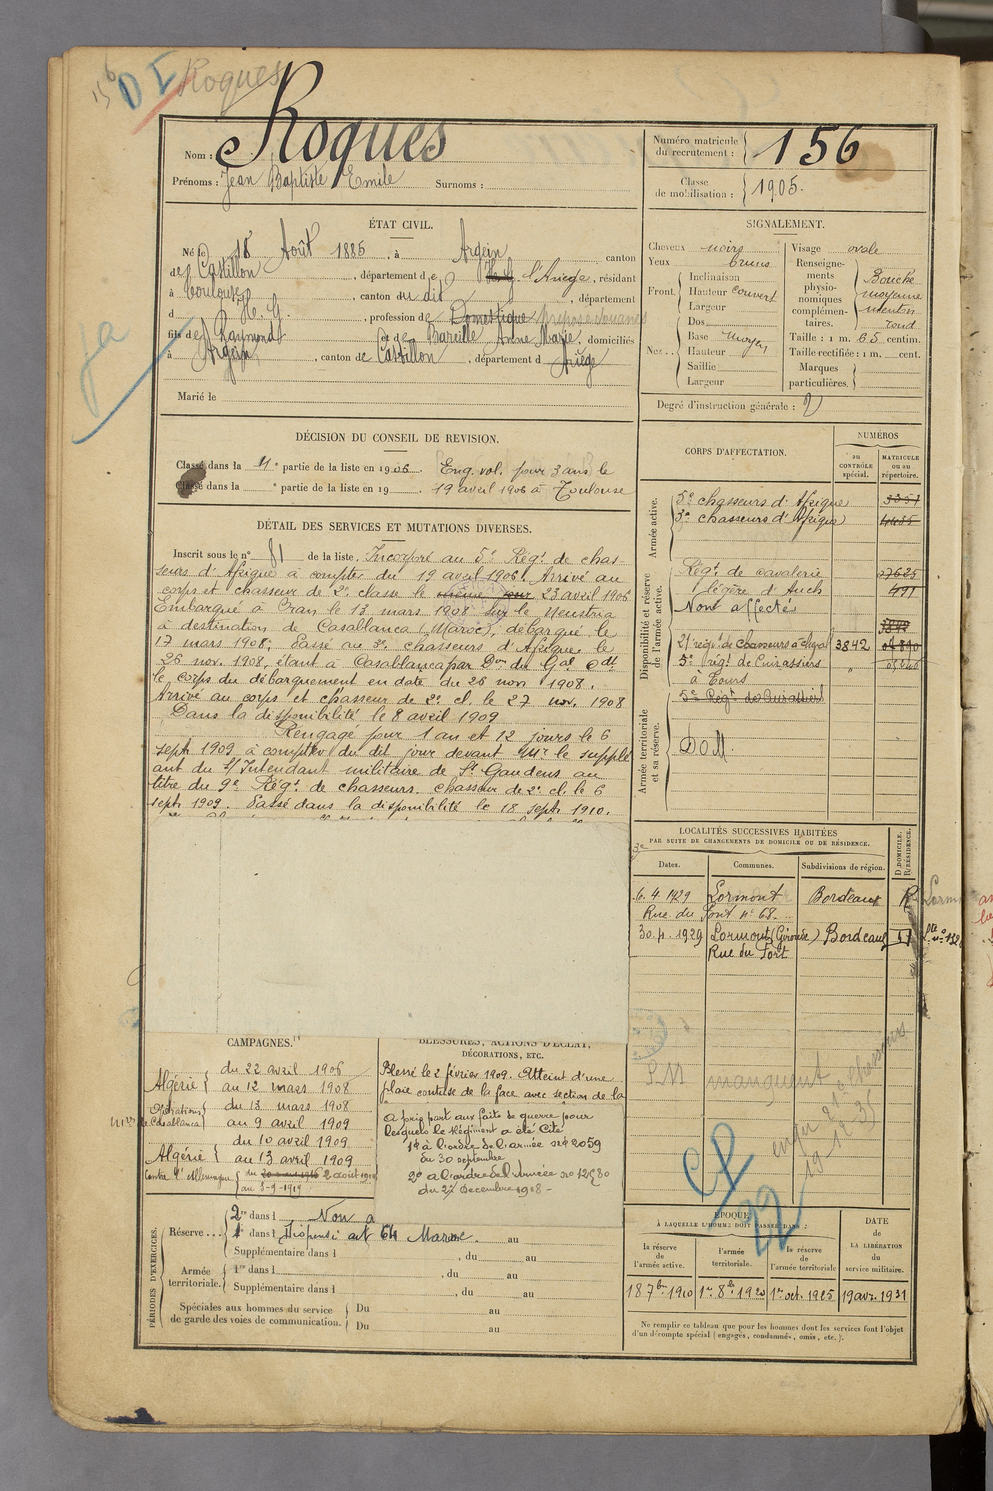 156 DI Roques
Nom : Roques
Prénoms : Jean Baptiste Emile Surnoms :
Numéro matricule du recrutement : 156
Classe de mobilisation : 1905.
ÉTAT CIVIL.
Né le 18 Août 1885, à Argein canton
de Castillon, département de l'Ariège, résidant
à Toulouse, canton du dit, département
d H. G., profession de Domestique préposé douanes
fils de Raymond et de Bareille Anne Marie, domiciliés
à Argein, canton de Castillon, département d Ariège
Marié le
ja
SIGNALEMENT.
Cheveux noirs
Yeux bruns
Front Inclinaison
Hauteur couvert
Largeur
Nez... Dos
Base moyen
Hauteur
Saillie
Largeur
Visage ovale
Renseignements physionomiques complémentaires. Bouche moyenne menton rond
Taille : 1 m. 65 centim.
Taille rectifiée : 1 m. cent.
Marques particulières.
Degré d'instruction générale : 2
DÉCISION DU CONSEIL DE REVISION.
Classé dans la 4e partie de la liste en 1906. Eng. vol. pour 3 ans le
Classé dans la e partie de la liste en 19 19 avril 1906 à Toulouse
DÉTAIL DES SERVICES ET MUTATIONS DIVERSES.
Inscrit sous le n° 81 de la liste. Incorporé au 5e Régt de chas-
seurs d'Afrique à compter du 19 avril 1906. Arrivé au
corps et chasseur de 2e classe le même jour 23 avril 1906
Embarqué à Oran le 13 mars 1908 sur le Neustria
à destination de Casablanca (Maroc), débarqué le
17 mars 1908; Passé au 3e chasseurs d'Afrique le
26 nov. 1908, étant à Casablanca par Don du Gal Cdt
le corps du débarquement en date du 26 nov 1908.
Arrivé au corps et chasseur de 2e cl. le 27 nov. 1908
Dans la disponibilité le 8 avril 1909
Rengagé pour 1 an et 12 jours le 6
sept 1909 à compter du dit jour devant Mr le supplé
ant du S/Intendant militaire de St Gaudens au
titre du 9e Régt de chasseurs. chasseur de 2e cl. le 6
sept 1909. Passé dans la disponibilité le 18 sept. 1910.
CORPS D'AFFECTATION.
NUMÉROS
au CONTRÔLE spécial.
MATRICULE ou au répertoire.
Armée active.
5e chasseurs d'Afrique
3e chasseurs d'Afrique
Disponibilité et réserve de l'armée active.
Régt de cavalerie
légère d'Auch
Non affecté
21e régt de chasseurs à cheval 3842
5e régt de Cuirassiers
à Tours
5e Régt de Cuirassiers
Armée territoriale et sa réserve.
DOM.
LOCALITÉS SUCCESSIVES HABITÉES
PAR SUITE DE CHANGEMENTS DE DOMICILE OU DE RÉSIDENCE.
Dates. Communes. Subdivisions de région. D. DOMICILE. R. RÉSIDENCE.
6.4.1929 Lormont Bordeaux R
Rue du Port n° 68.
30.4.1929 Lormont (Gironde) Bordeaux
Rue du Port
PM manquent
CP
22
CAMPAGNES.
Algérie du 22 avril 1906
au 12 mars 1908
Opérations Casablanca du 13 mars 1908
au 9 avril 1909
Algérie du 10 avril 1909
au 13 avril 1909
Contre l'Allemagne du 2 août 1914
au 3-9-1919
BLESSURES, ACTIONS D'ÉCLAT, DÉCORATIONS, ETC.
Blessé le 2 février 1909. Atteint d'une
plaie contuse de la face avec section de la
a pris part aux faits de guerre pour
lesquels le Régiment a été Cité
1° à l'ordre de l'armée n° 2059
du 30 septembre
2° a l'ordre de l'Armée no 12580
du 27 Decembre 1918 -
PÉRIODES D'EXERCICES.
Réserve... 2e dans l Non a
1e dans l Dispensé art 64 Marine. au
Supplémentaire dans l , du au
Armée territoriale. 1re dans l , du au
Supplémentaire dans l , du au
Spéciales aux hommes du service de garde des voies de communication. Du au
Du au
ÉPOQUE
À LAQUELLE L'HOMME DOIT PASSER DANS :
la réserve de l'armée active. l'armée territoriale. la réserve de l'armée territoriale
DATE DE LA LIBÉRATION du service militaire.
18 7bre 1910 1er 8bre 1920 1er oct. 1925 19 avr. 1931
Ne remplir ce tableau que pour les hommes dont les services font l'objet
d'un décompte spécial (engagés, condamnés, omis, etc.).